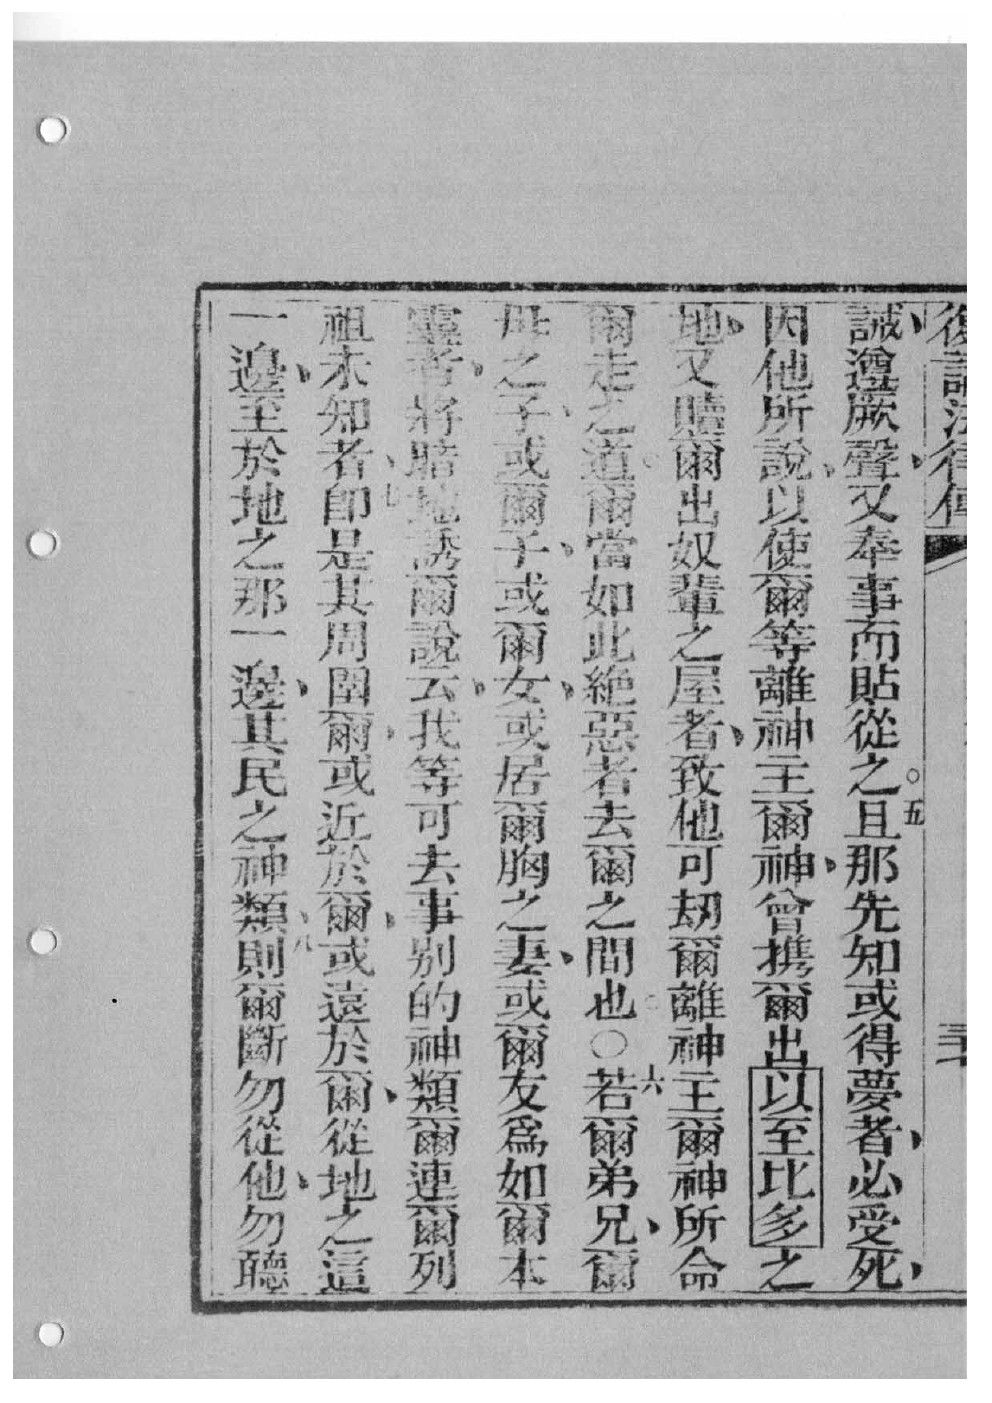 復講法律傳
誡遵厥聲又奉事而貼從之。五且那先知或得夢者必受死
因他所說以使爾等離神主爾神曾携爾出以至比多之
地又贖爾出奴輩之屋者致他可刼爾離神主爾神所命
爾走之道爾當如此絶惡者去爾之間也○六若爾弟兄爾
母之子或爾子或爾女或居爾胸之妻或爾友爲如爾本
靈者將暗地誘爾說云我等可去事别的神類爾連爾列
祖未知者七卽是其周圍爾或近於爾或遠於爾從地之這
一邊至於地之那一邊其民之神類八則爾斷勿從他勿聽